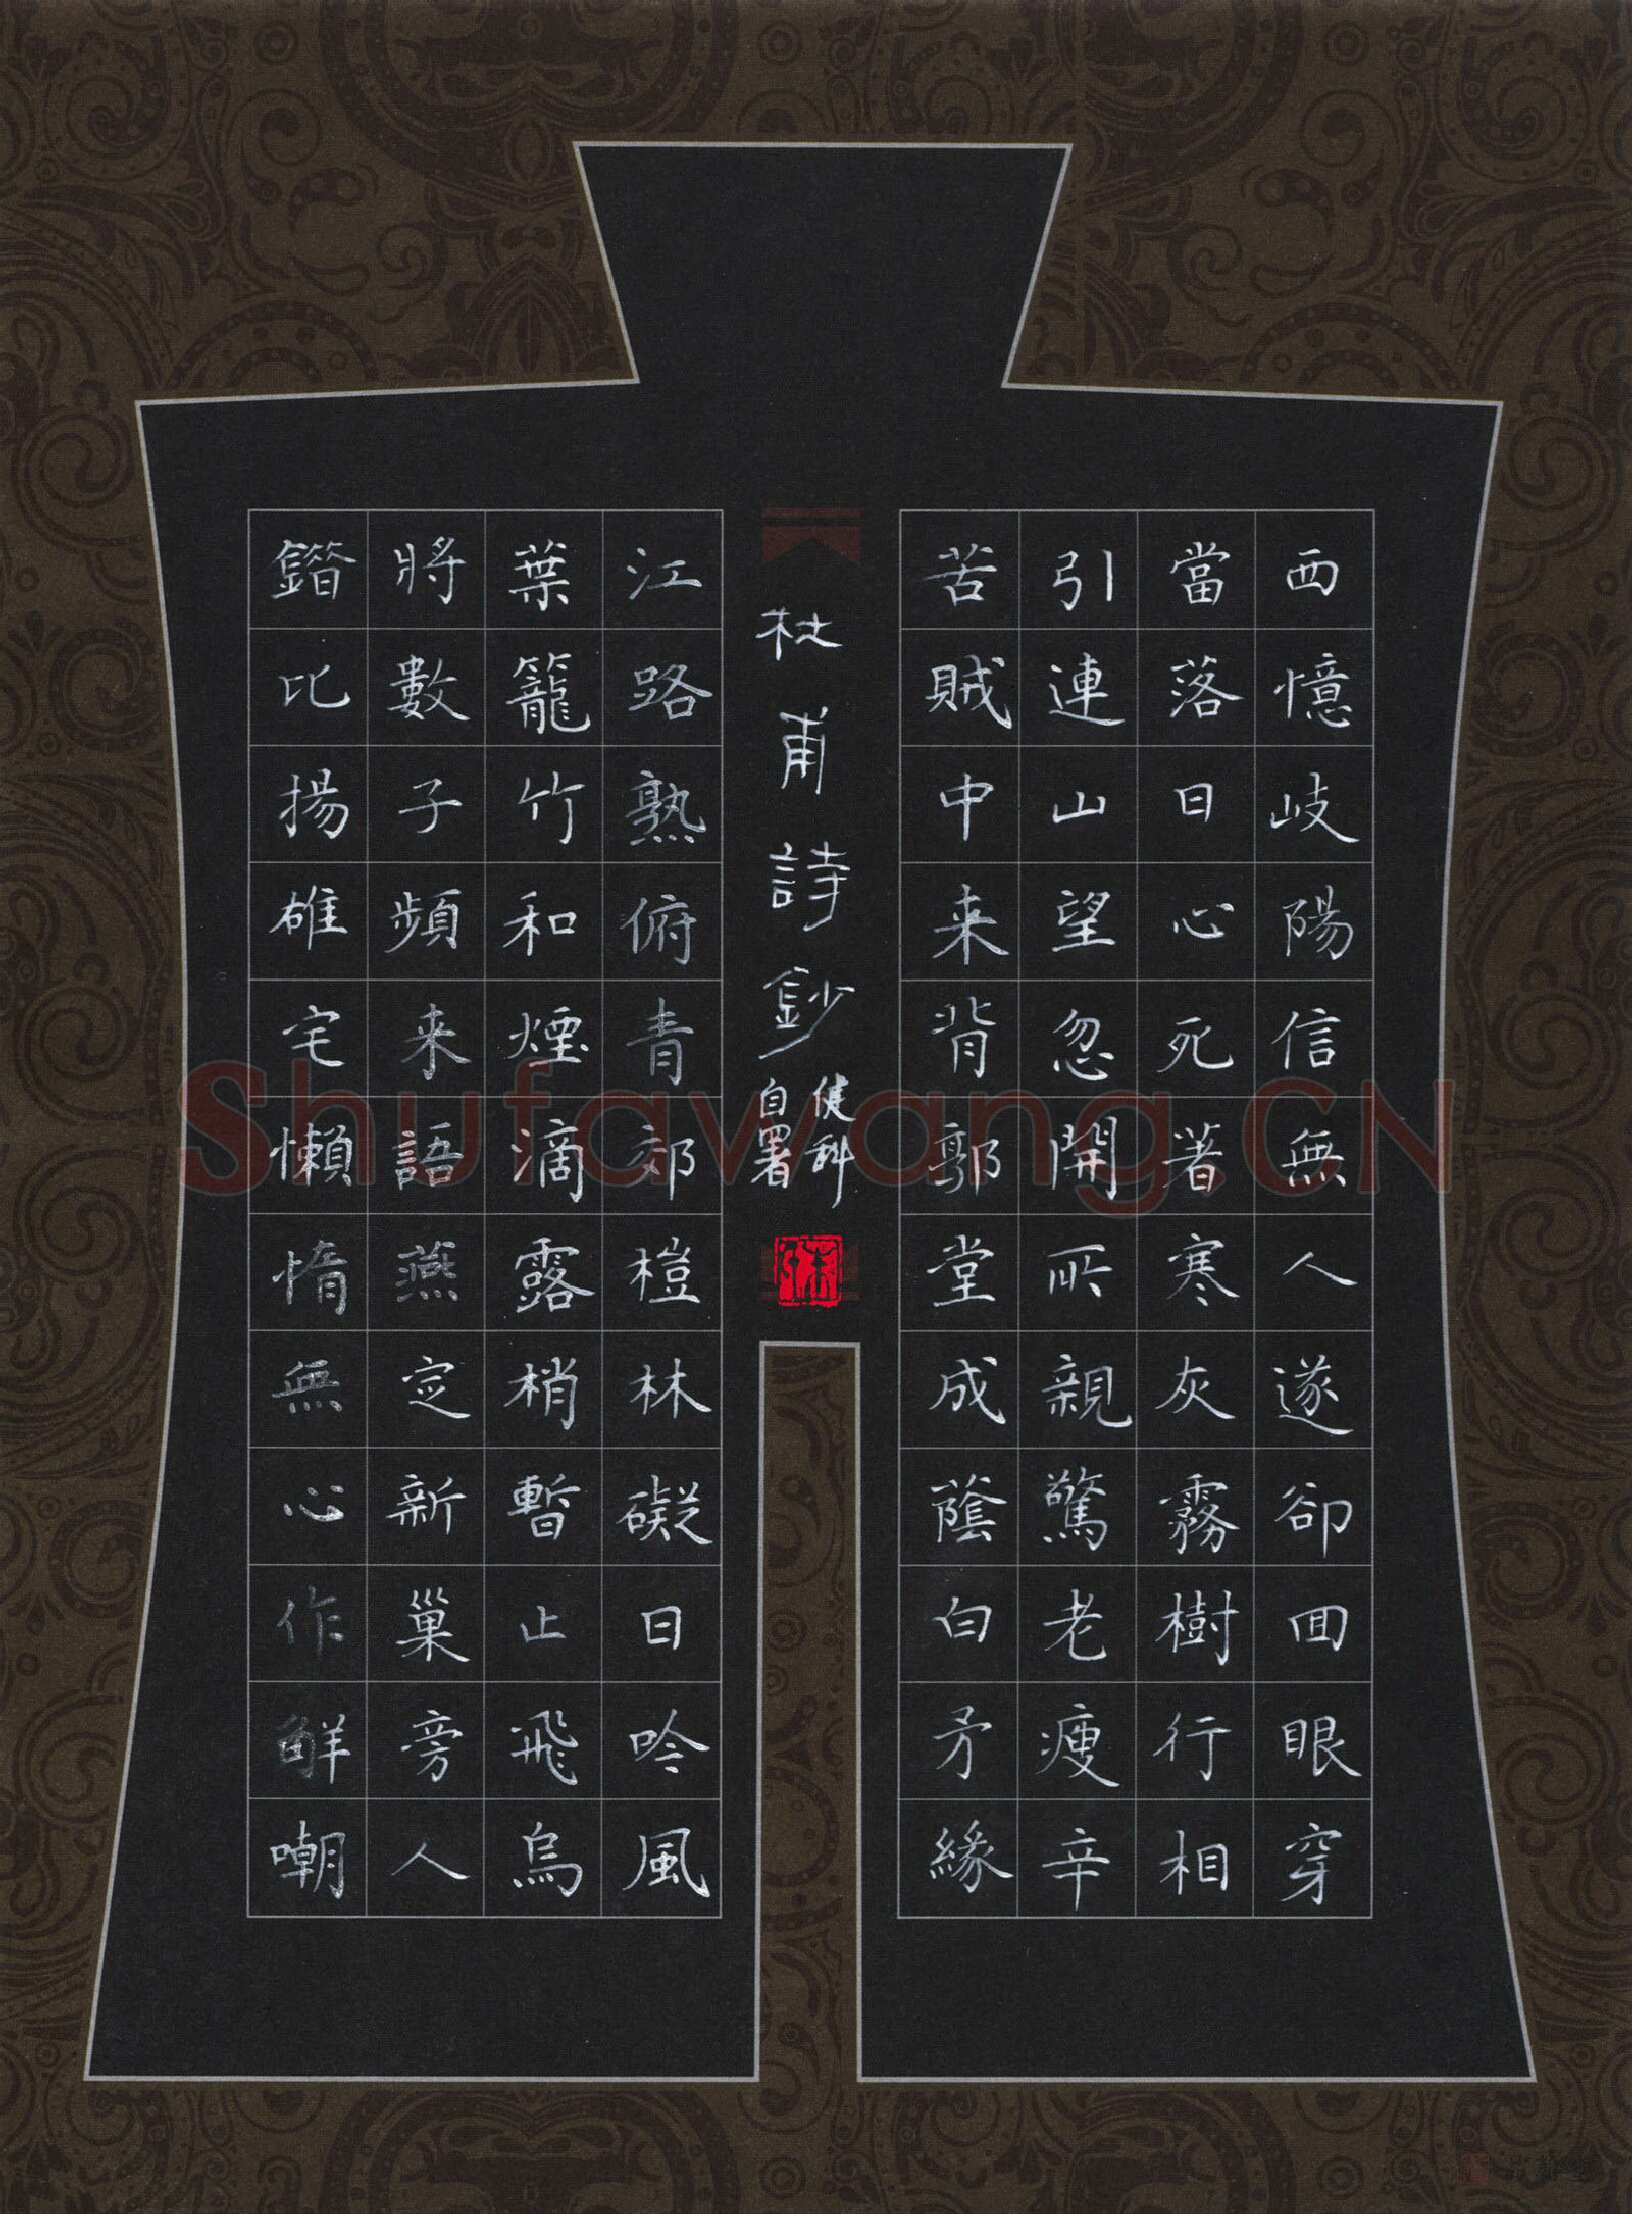 西憶岐陽信無人遂卻囬眼穿
當落日心死著寒灰霧樹行相
引連山望忽開所親驚老瘦辛
苦賊中来背郭堂成蔭白矛緣
杜甫詩鈔
健科
自署
江路熟俯青郊榿林礙日吟風
葉籠竹和煙滴露梢暫止飛烏
將數子頻来語燕定新巢旁人
錯比揚雄宅懶惰無心作解嘲
Shufawang.CN